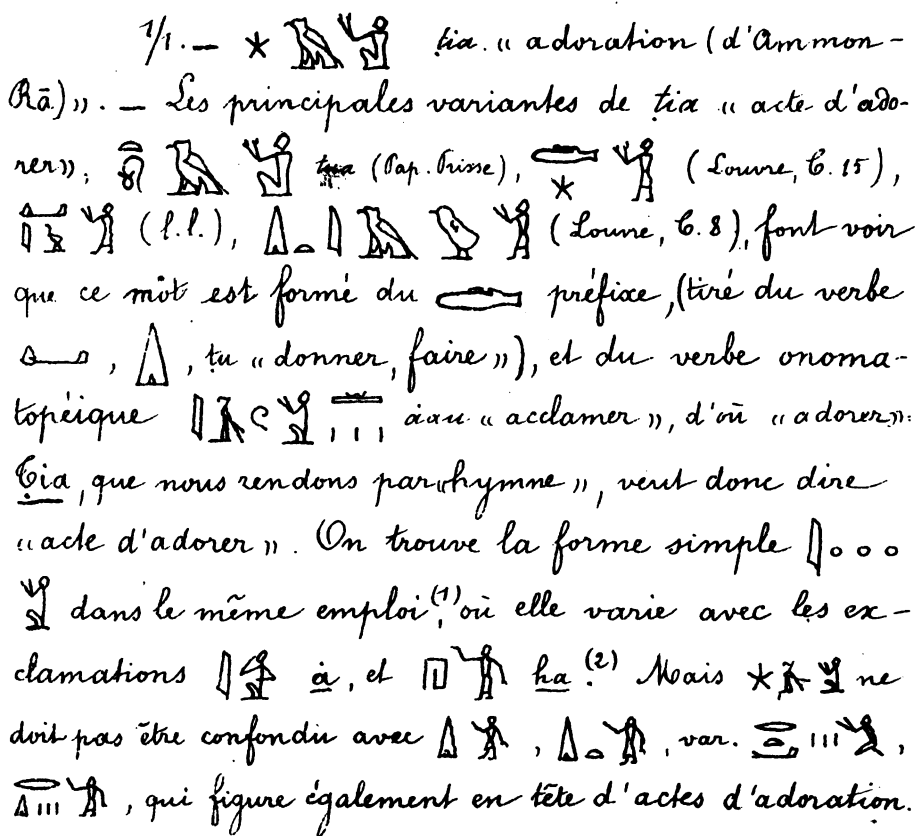 1/1. — 𓇼𓄿𓀢 ṭia. « adoration (d'Ammon-
Rā) ». — Les principales variantes de ṭia « acte d'ado-
rer », 𓄿 (Pap. Prisse), 𓇼 (Louvre, C. 15),
(l.l.), 𓏙𓏏𓇋𓄿𓅱𓀢 (Louvre, C. 8), font voir
que ce mot est formé du préfixe, (tiré du verbe
, 𓏙, ṭu « donner, faire »), et du verbe onoma-
topéique 𓇋𓀗𓏲𓀢𓏥 àau « acclamer », d'où « adorer »:
Ṭia, que nous rendons par « hymne », veut donc dire
« acte d'adorer ». On trouve la forme simple 𓇋 o o o
𓀢 dans le même emploi (1), où elle varie avec les ex-
clamations 𓇋𓀁 à, et 𓉔 ha (2). Mais 𓇼𓀗𓀢 ne
doit pas être confondu avec 𓏙, 𓏙𓏏, var. 𓏥,
𓂋𓏙𓏥, qui figure également en tête d'actes d'adoration.